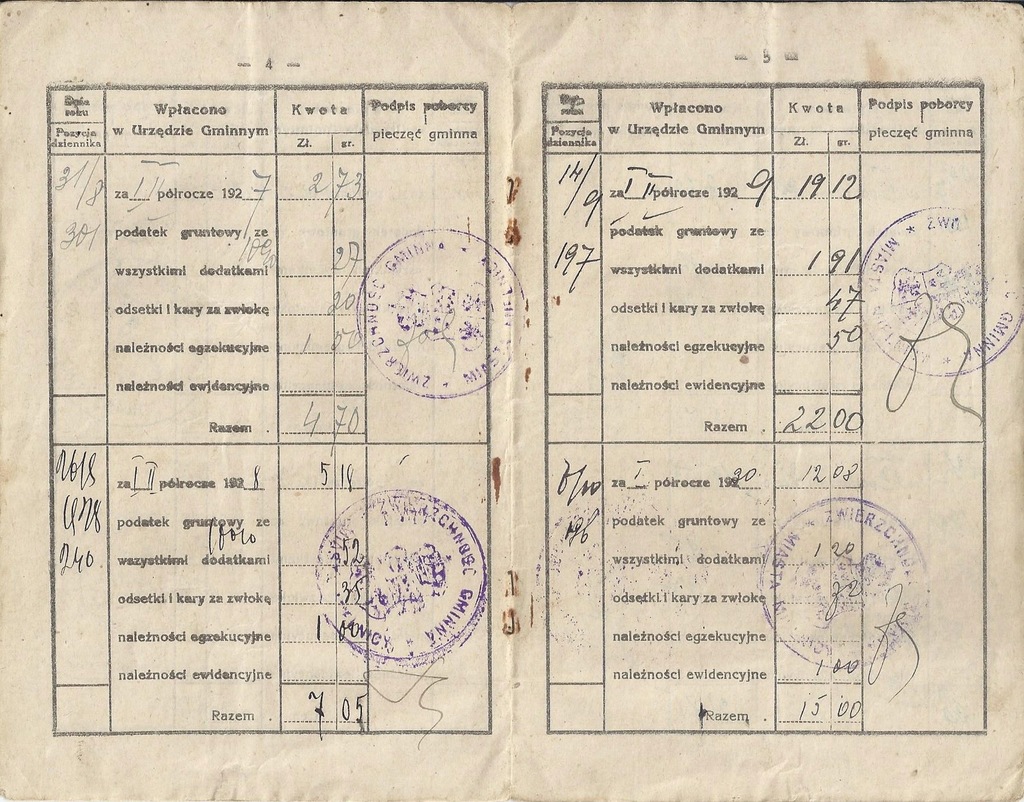 — 4 —
Data roku
Wpłacono
Kwota
Podpis poborcy
Pozycja dziennika
w Urzędzie Gminnym
Zł. gr.
pieczęć gminna
31/8 za I II półrocze 1927 2 73
301 podatek gruntowy ze
10%
wszystkimi dodatkami 27
odsetki i kary za zwłokę 20
należności egzekucyjne 1 50
należności ewidencyjne
Razem . 4 70
ZWIERZCHNOŚĆ GMINNA
za I II półrocze 1928 5 18
podatek gruntowy ze
240 10%
wszystkimi dodatkami 52
odsetki i kary za zwłokę 35
należności egzekucyjne 1 00
należności ewidencyjne
Razem . 7 05
ZWIERZCHNOŚĆ GMINNA
— 5 —
Wpłacono
Kwota
Podpis poborcy
Pozycja dziennika
w Urzędzie Gminnym
Zł. gr.
pieczęć gminna
14/9 za I II półrocze 1929 19 12
podatek gruntowy ze
197 wszystkimi dodatkami 1 91
odsetki i kary za zwłokę 47
należności egzekucyjne 50
należności ewidencyjne
Razem . 22 00
GMINNA MIASTA
za I półrocze 1930 12 08
196 podatek gruntowy ze
wszystkimi dodatkami 1 20
odsetki i kary za zwłokę 72
należności egzekucyjne
należności ewidencyjne 1 00
Razem . 15 00
ZWIERZCHNOŚĆ MIASTA